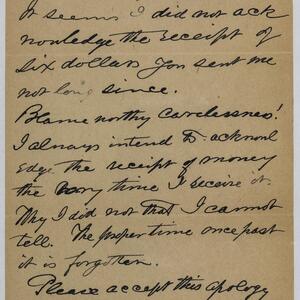 It seems I did not ack
nowledge the receipt of
six dollars you sent me
not long since.
Blame worthy carelessness!
I always intend to acknowl
edge the receipt of money
the very time I receive it.
Why I did not that I cannot
tell. The proper time once past
it is forgotten.
Please accept this apology